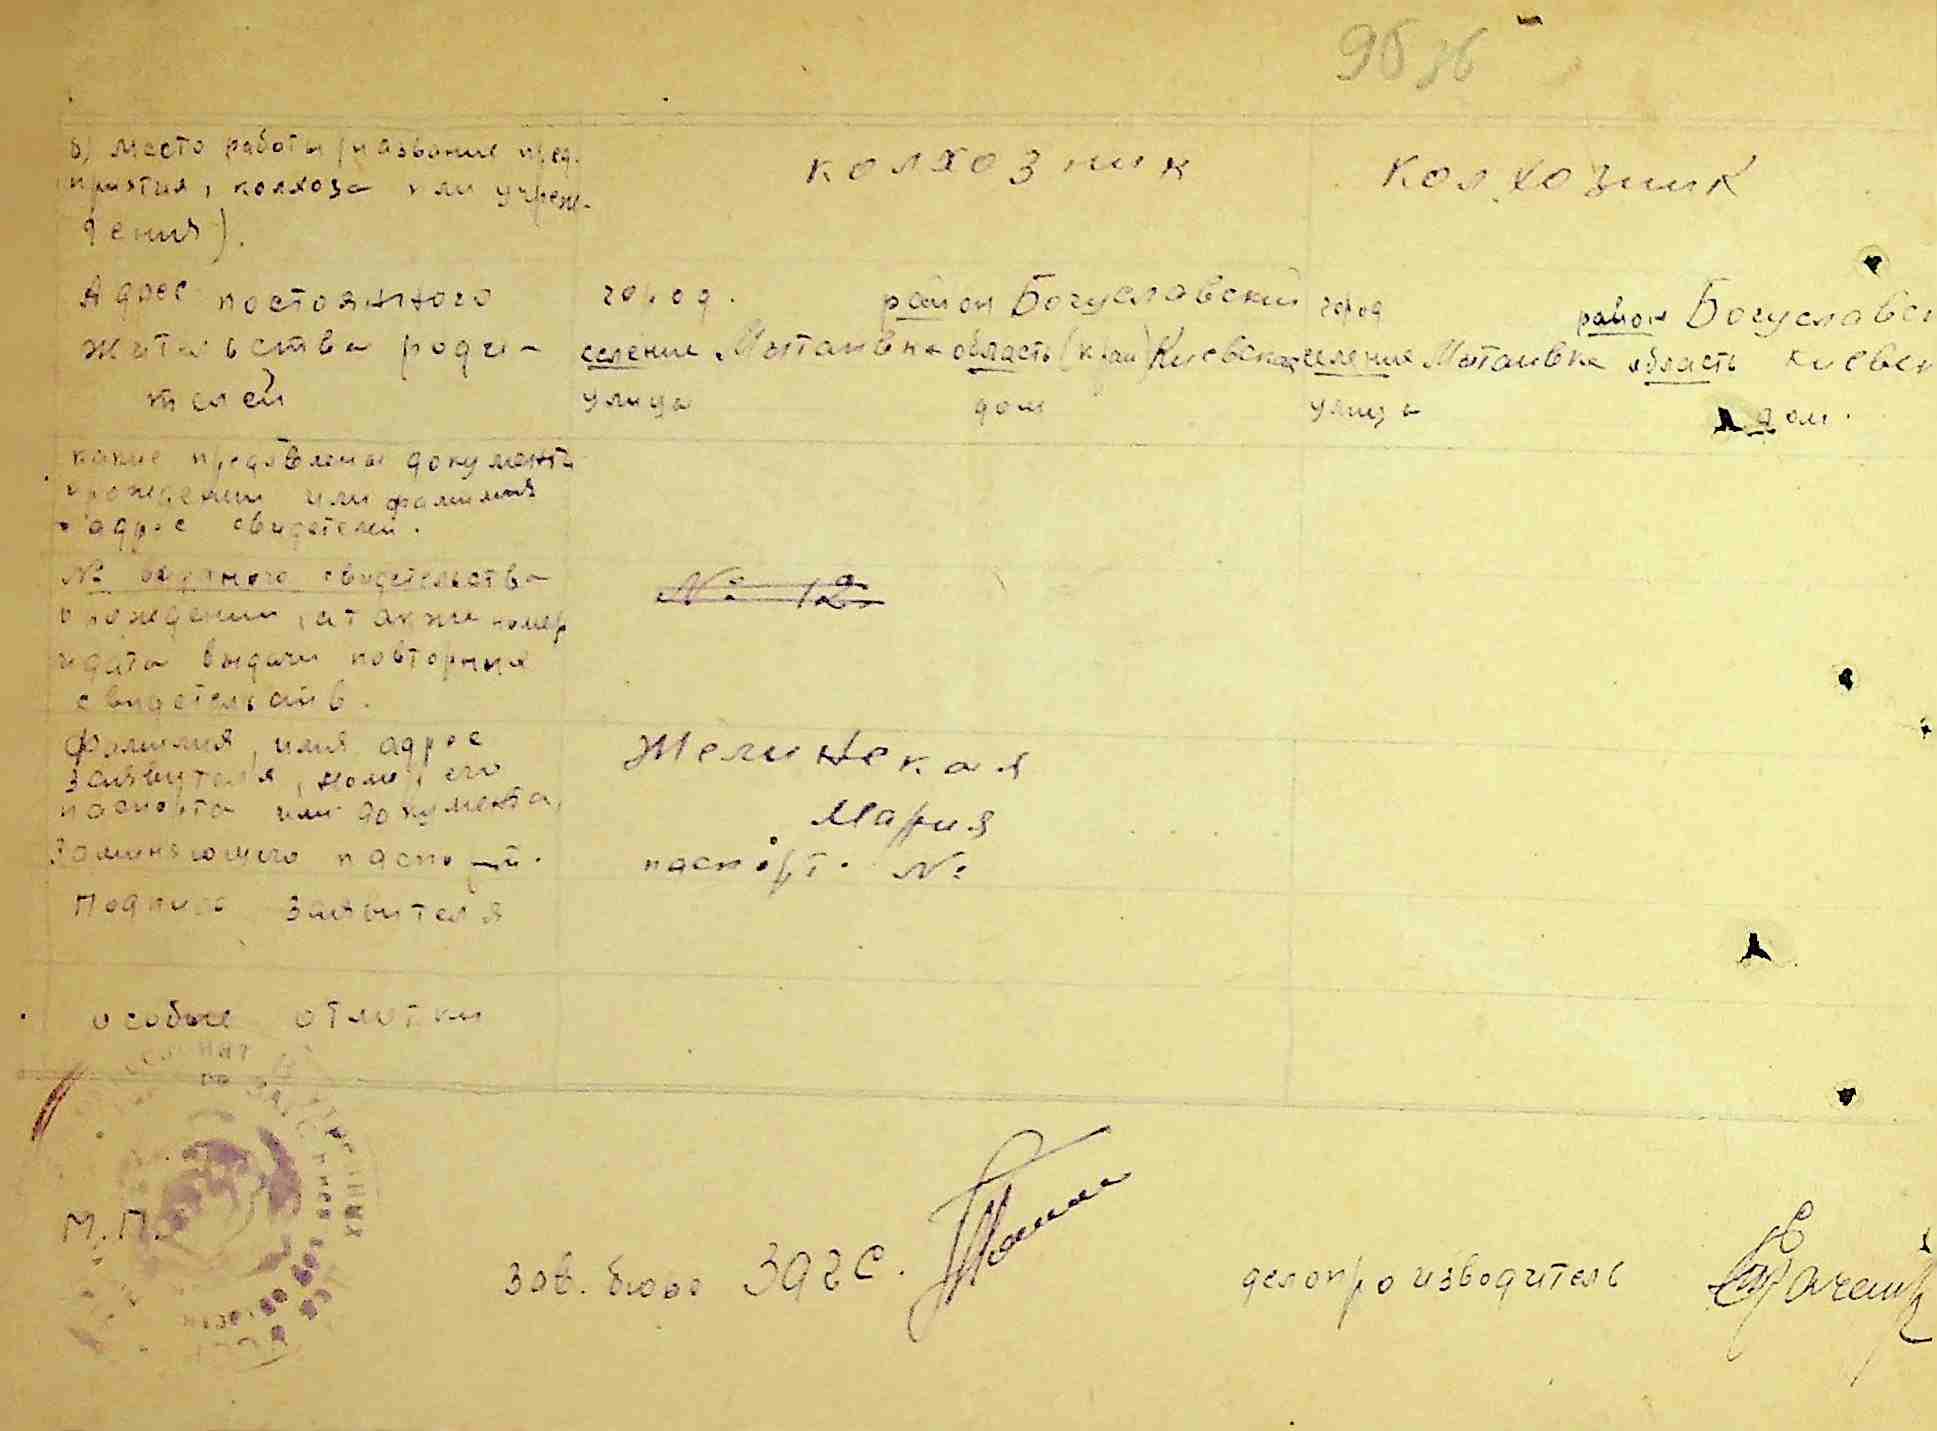 96 зв
б) место работы (название пред-
приятия, колхоза или учреж-
дения).
колхозник
колхозник
Адрес постоянного
жительства роди-
телей
город. район Богуславский
селение Мытаивка область (край) Киевская
улица дом
город район Богуславск
селение Мытаивка область Киевск
улица дом.
какие предявлены документы
о рождении или фамилия
и адрес свидетелей.
№ выданного свидетельства
о рождении, а также номер
и дата выдачи повторных
свидетельств.
№ 12
Фамилия, имя, адрес
заявителя, номер его
паспорта или документа,
заменяющего паспорт.
Желинская
Мария
паспорт. №
Подпись заявителя
особые отметки
М.П.
Зав. бюро ЗАГС.
делопроизводитель